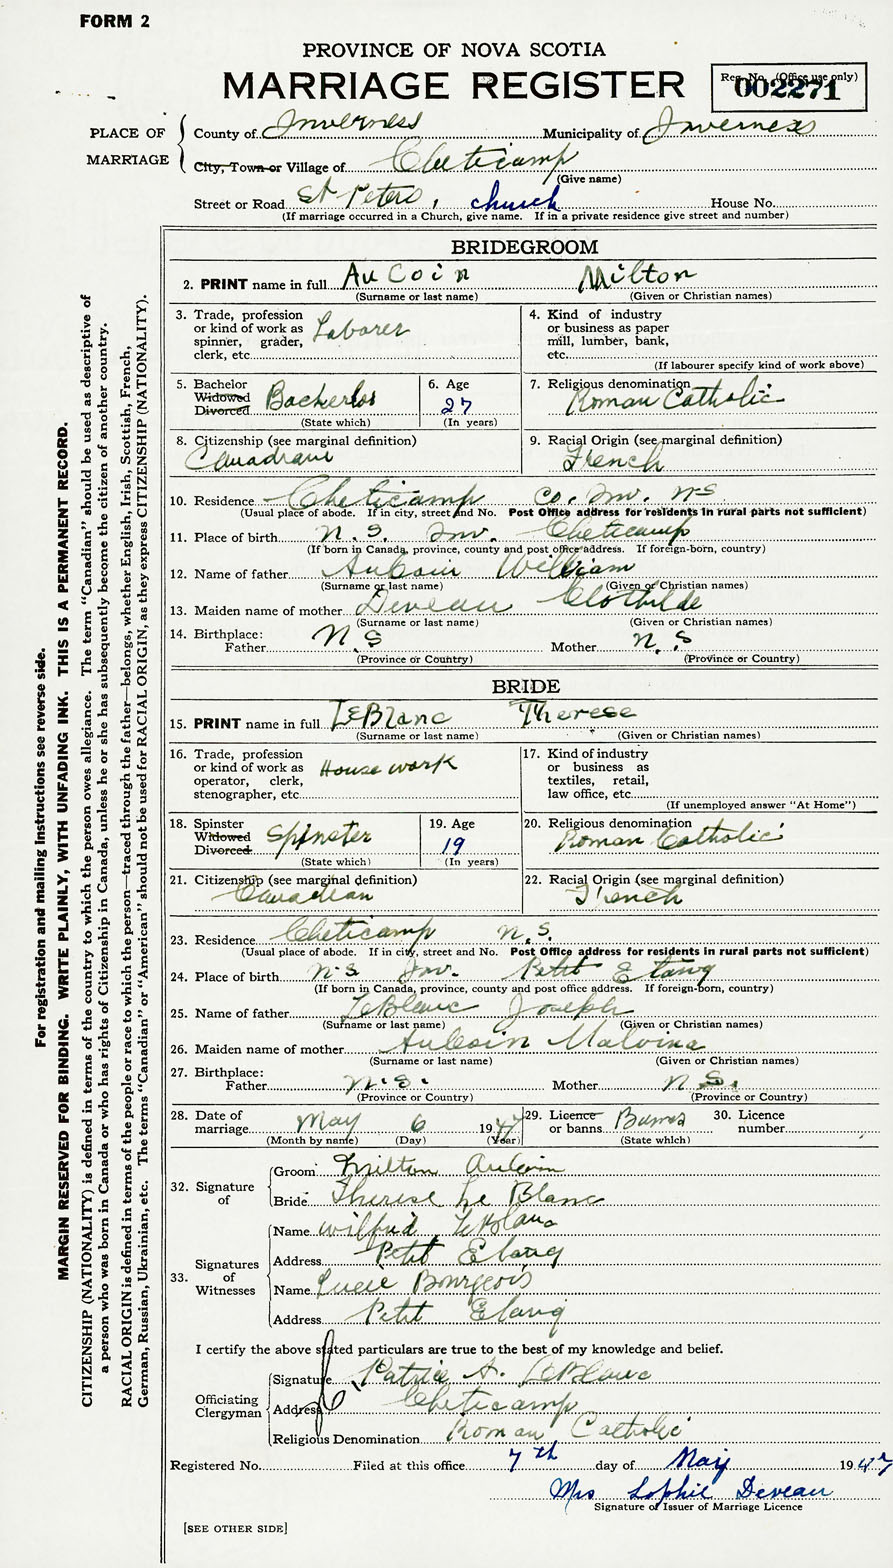 FORM 2
PROVINCE OF NOVA SCOTIA
MARRIAGE REGISTER
Reg. No. (Office use only)
002271
PLACE OF MARRIAGE
County of Inverness Municipality of Inverness
City, Town or Village of Cheticamp
(Give name)
Street or Road St Peters, church House No.
(If marriage occurred in a Church, give name. If in a private residence give street and number)
BRIDEGROOM
2. PRINT name in full AuCoin Milton
(Surname or last name) (Given or Christian names)
3. Trade, profession or kind of work as spinner, grader, clerk, etc. Laborer
4. Kind of industry or business as paper mill, lumber, bank, etc.
(If labourer specify kind of work above)
5. Bachelor Widowed Divorced Bacherlos
(State which)
6. Age 27
(In years)
7. Religious denomination Roman Catholic
8. Citizenship (see marginal definition) Canadian
9. Racial Origin (see marginal definition) French
10. Residence Cheticamp Co. Inv. NS
(Usual place of abode. If in city, street and No. Post Office address for residents in rural parts not sufficient)
11. Place of birth N.S. Inv. Cheticamp
(If born in Canada, province, county and post office address. If foreign-born, country)
12. Name of father AuCoin William
(Surname or last name) (Given or Christian names)
13. Maiden name of mother Deveau Clothilde
(Surname or last name) (Given or Christian names)
14. Birthplace:
Father N.S Mother N.S
(Province or Country) (Province or Country)
BRIDE
15. PRINT name in full LeBlanc Therese
(Surname or last name) (Given or Christian names)
16. Trade, profession or kind of work as operator, clerk, stenographer, etc. House work
17. Kind of industry or business as textiles, retail, law office, etc.
(If unemployed answer "At Home")
18. Spinster Widowed Divorced Spinster
(State which)
19. Age 19
(In years)
20. Religious denomination Roman Catholic
21. Citizenship (see marginal definition) Canadian
22. Racial Origin (see marginal definition) French
23. Residence Cheticamp N.S.
(Usual place of abode. If in city, street and No. Post Office address for residents in rural parts not sufficient)
24. Place of birth N.S Inv. Petit Etang
(If born in Canada, province, county and post office address. If foreign-born, country)
25. Name of father LeBlanc Joseph
(Surname or last name) (Given or Christian names)
26. Maiden name of mother AuCoin Malvina
(Surname or last name) (Given or Christian names)
27. Birthplace:
Father N.S. Mother N.S.
(Province or Country) (Province or Country)
28. Date of marriage May 6 1947
(Month by name) (Day) (Year)
29. Licence or banns Banns
(State which)
30. Licence number
32. Signature of
Groom Milton Aucoin
Bride Therese Le Blanc
33. Signatures of Witnesses
Name Wilfrid LeBlanc
Address Petit Etang
Name Lucie Bourgeois
Address Petit Etang
I certify the above stated particulars are true to the best of my knowledge and belief.
Officiating Clergyman
Signature Patrice A. LeBlanc
Address Cheticamp
Religious Denomination Roman Catholic
Registered No. Filed at this office 7th day of May 1947
Mrs Sophie Deveau
Signature of Issuer of Marriage Licence
[SEE OTHER SIDE]
For registration and mailing instructions see reverse side.
MARGIN RESERVED FOR BINDING. WRITE PLAINLY, WITH UNFADING INK. THIS IS A PERMANENT RECORD.
CITIZENSHIP (NATIONALITY) is defined in terms of the country to which the person owes allegiance. The term "Canadian" should be used as descriptive of
a person who was born in Canada or who has rights of Citizenship in Canada, unless he or she has subsequently become the citizen of another country.
RACIAL ORIGIN is defined in terms of the people or race to which the person—traced through the father—belongs, whether English, Irish, Scottish, French,
German, Russian, Ukrainian, etc. The terms "Canadian" or "American" should not be used for RACIAL ORIGIN, as they express CITIZENSHIP (NATIONALITY).